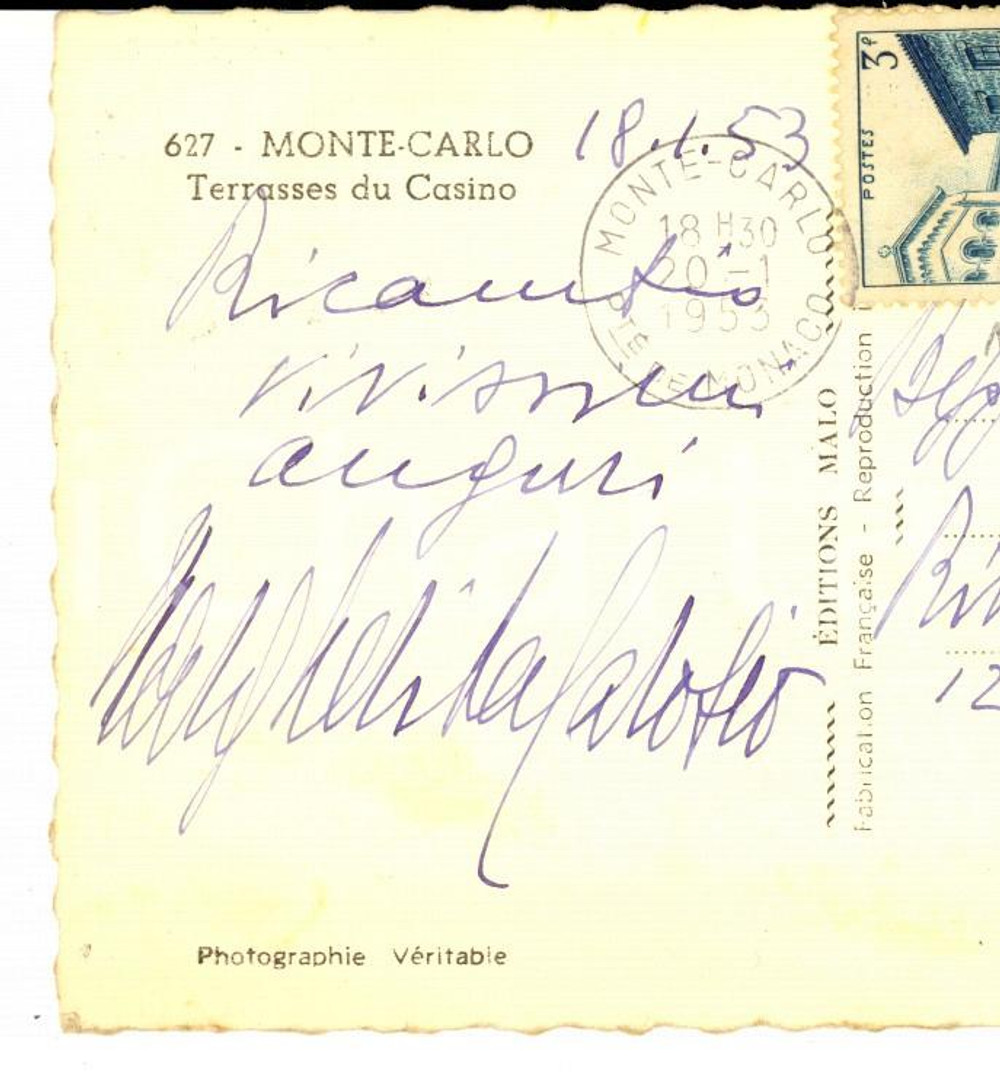 627 - MONTE-CARLO
Terrasses du Casino
18.1.53
MONTE-CARLO
18 H30
20 -1
1953
PTÉ DE MONACO
3F
POSTES
Ricambio
vivissimi
auguri
ÉDITIONS MALO
Fabrication Française - Reproduction i
12
Photographie Véritable